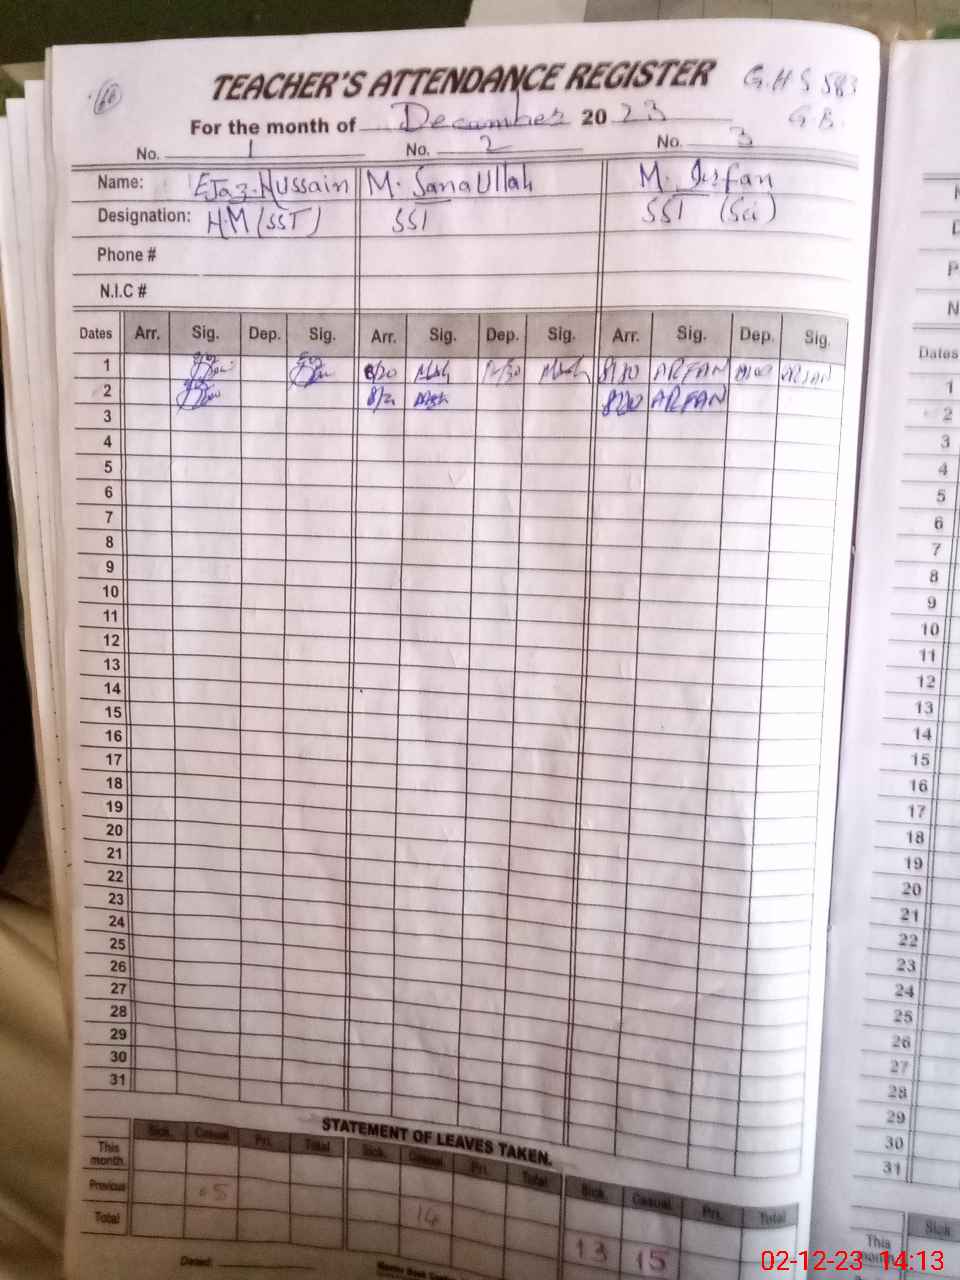 66
TEACHER'S ATTENDANCE REGISTER G.H.S 583
For the month of December 2023 G.B.
No. 1 No. 2 No. 3
Name: Ejaz Hussain M. Sanaullah M. Irfan
Designation: HM (SST) SST SST (Sci)
Phone #
N.I.C #
Dates Arr. Sig. Dep. Sig. Arr. Sig. Dep. Sig. Arr. Sig. Dep. Sig.
1 8/20 12/30 8/20 ARFAN ARFAN
2 8/20 ARFAN
3
4
5
6
7
8
9
10
11
12
13
14
15
16
17
18
19
20
21
22
23
24
25
26
27
28
29
30
31
STATEMENT OF LEAVES TAKEN.
Sick. Casual Pri. Total Sick. Casual Pri. Total Sick. Casual Pri. Total
This month
Previous 05 14 13 15
Total
Dated:
Dates
1
2
3
4
5
6
7
8
9
10
11
12
13
14
15
16
17
18
19
20
21
22
23
24
25
26
27
28
29
30
31
Sick
This
02-12-23 14:13